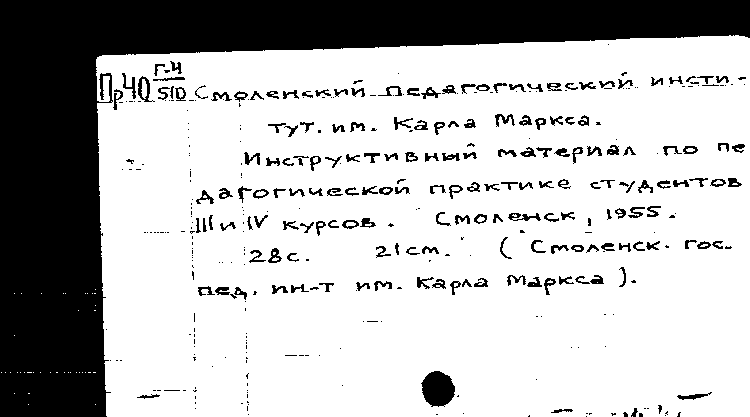 Г-4
Пр40 510 Смоленский педагогический инсти-
тут. им. Карла Маркса.
Инструктивный материал по пе
дагогической практике студентов
III и IV курсов. Смоленск, 1955.
28с. 21см. (Смоленск. гос.
пед. ин-т им. Карла Маркса).